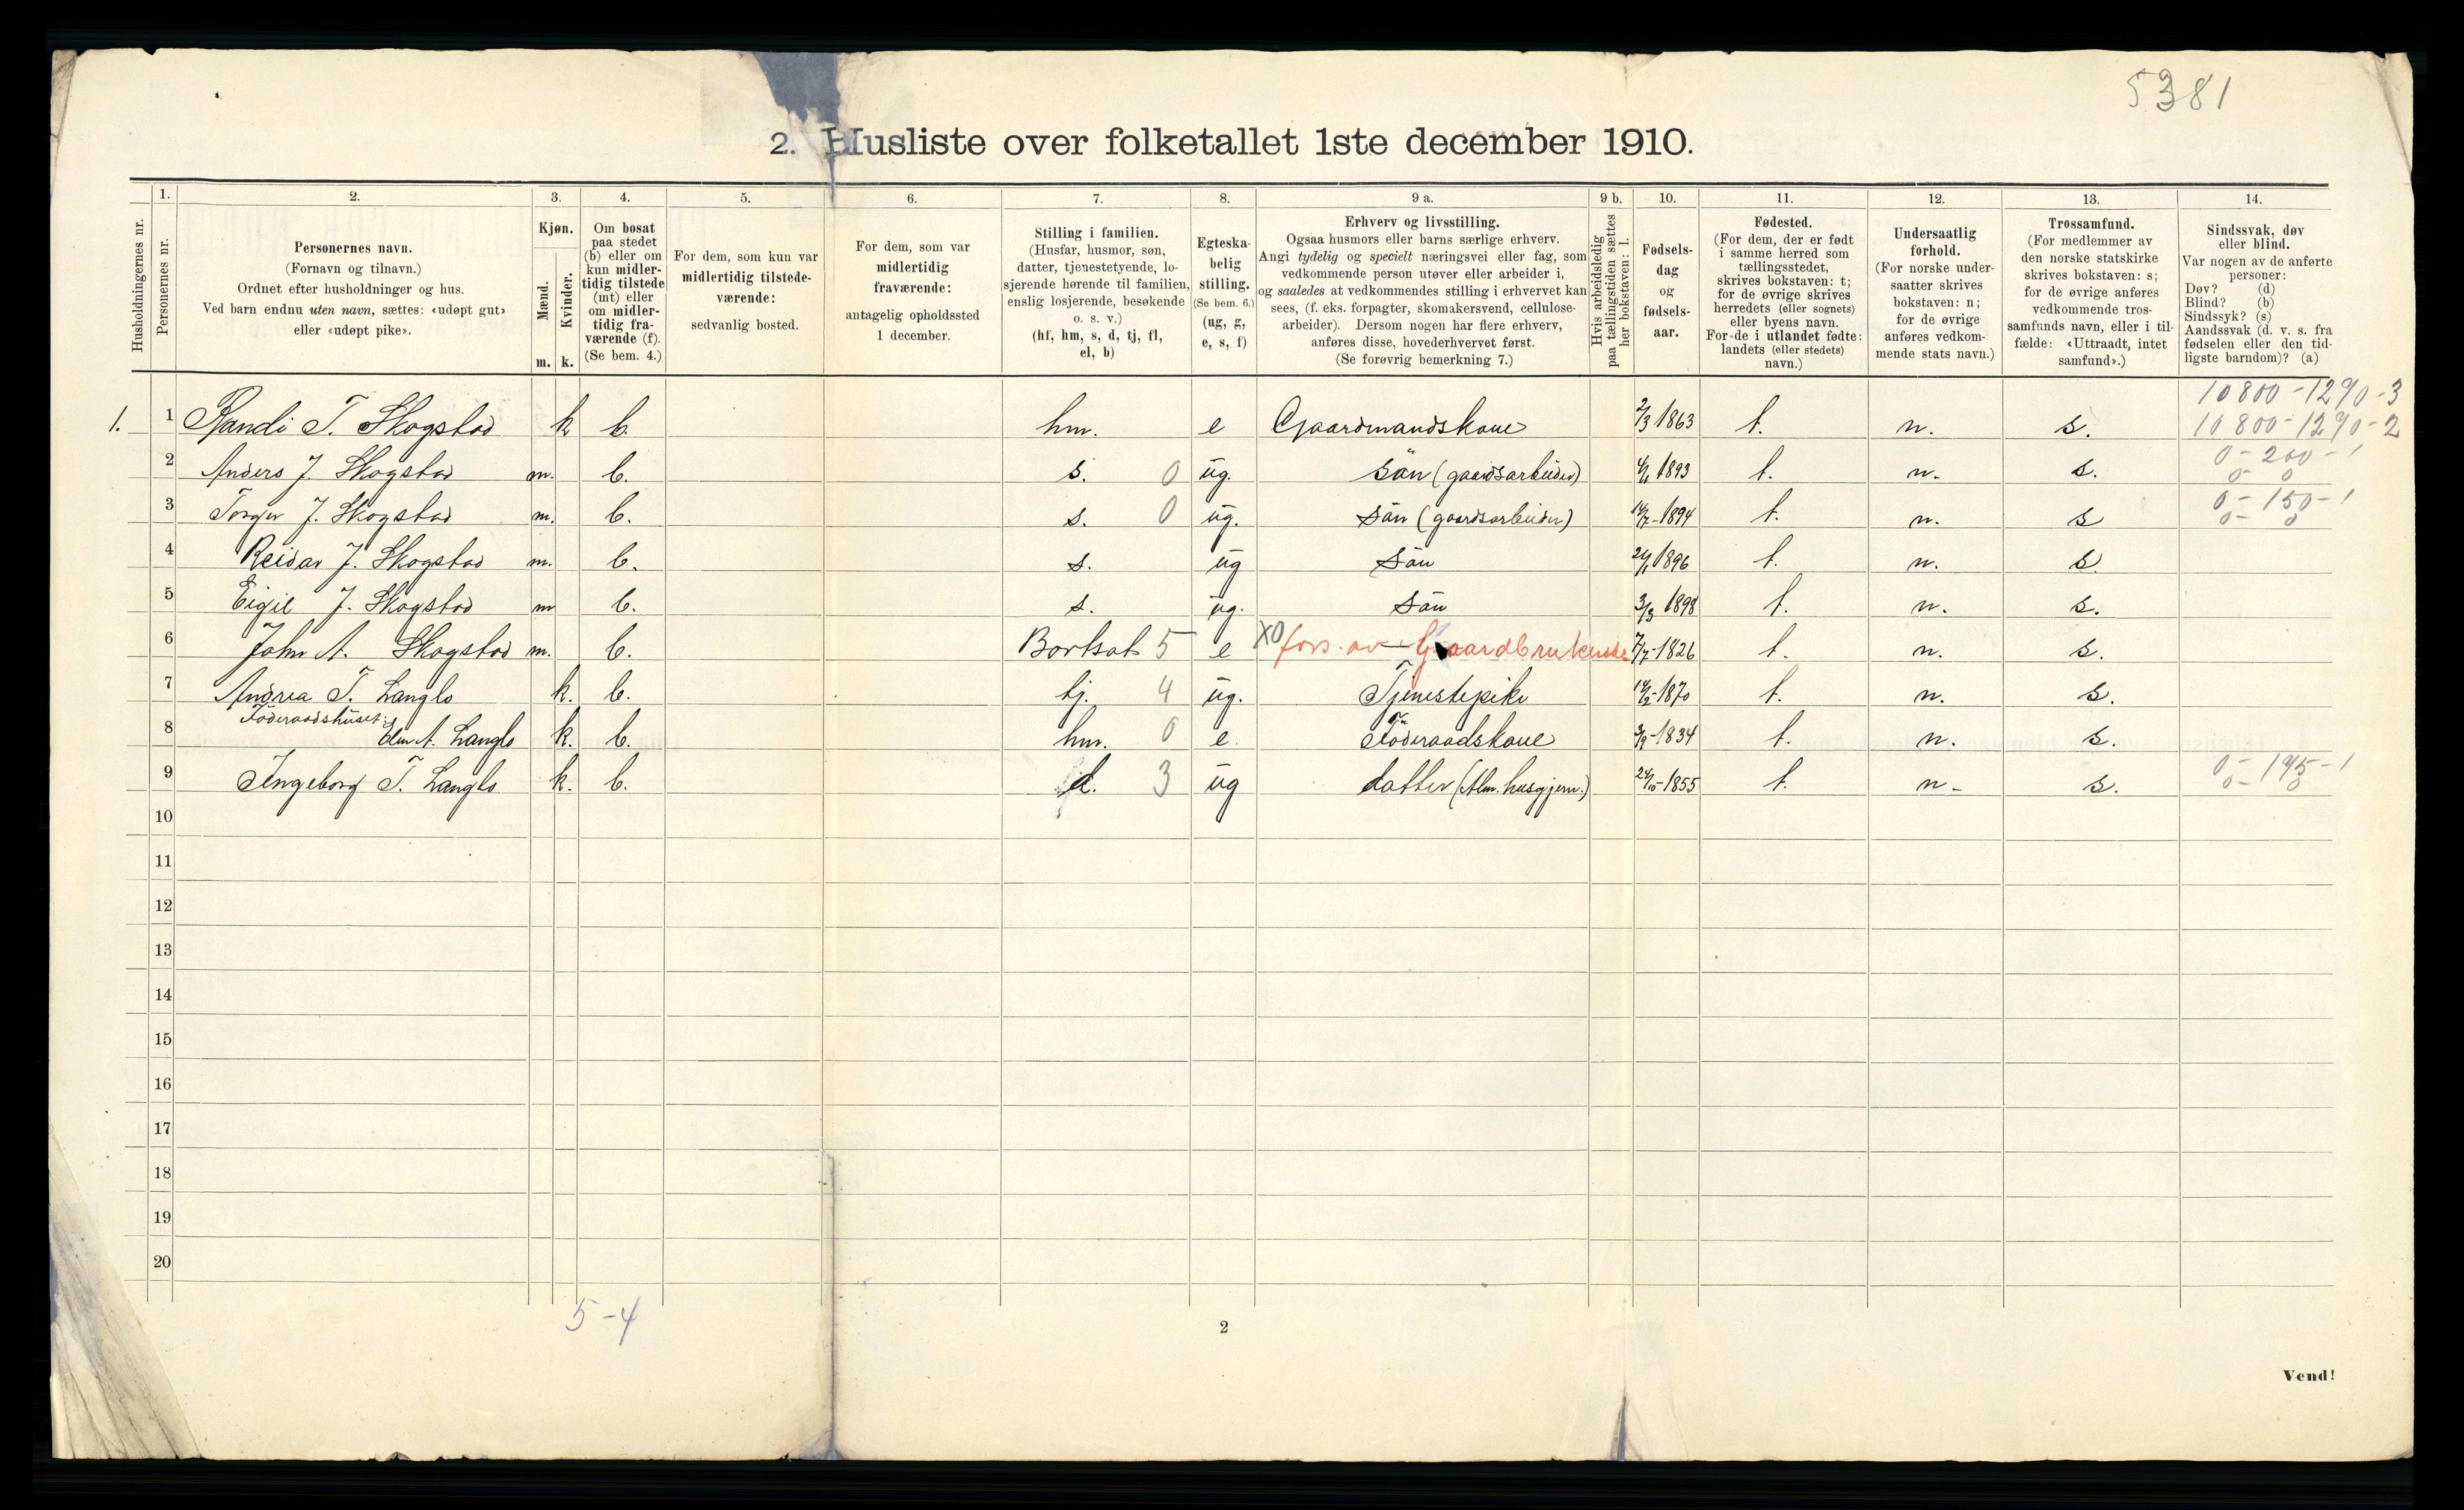 5381
2. Husliste over folketallet 1ste december 1910.
Husholdningernes nr.
1.
Personernes nr.
2.
Personernes navn.
(Fornavn og tilnavn.)
Ordnet efter husholdninger og hus.
Ved barn endnu uten navn, sættes: «udøpt gut»
eller «udøpt pike».
3.
Kjøn.
Mænd.
Kvinder.
m. k.
4.
Om bosat
paa stedet
(b) eller om
kun midler-
tidig tilstede
(mt) eller
om midler-
tidig fra-
værende (f).
(Se bem. 4.)
5.
For dem, som kun var
midlertidig tilstede-
værende:
sedvanlig bosted.
6.
For dem, som var
midlertidig
fraværende:
antagelig opholdssted
1 december.
7.
Stilling i familien.
(Husfar, husmor, søn,
datter, tjenestetyende, lo-
sjerende hørende til familien,
enslig losjerende, besøkende
o. s. v.)
(hf, hm, s, d, tj, fl,
el, b)
8.
Egteska-
belig
stilling.
(Se bem. 6.)
(ug, g,
e, s, f)
9 a.
Erhverv og livsstilling.
Ogsaa husmors eller barns særlige erhverv.
Angi tydelig og specielt næringsvei eller fag, som
vedkommende person utøver eller arbeider i,
og saaledes at vedkommendes stilling i erhvervet kan
sees, (f. eks. forpagter, skomakersvend, cellulose-
arbeider). Dersom nogen har flere erhverv,
anføres disse, hovederhvervet først.
(Se forøvrig bemerkning 7.)
9 b.
Hvis arbeidsledig
paa tællingstiden sættes
her bokstaven: l.
10.
Fødsels-
dag
og
fødsels-
aar.
11.
Fødested.
(For dem, der er født
i samme herred som
tællingsstedet,
skrives bokstaven: t;
for de øvrige skrives
herredets (eller sognets)
eller byens navn.
For de i utlandet fødte:
landets (eller stedets)
navn.)
12.
Undersaatlig
forhold.
(For norske under-
saatter skrives
bokstaven: n;
for de øvrige
anføres vedkom-
mende stats navn.)
13.
Trossamfund.
(For medlemmer av
den norske statskirke
skrives bokstaven: s;
for de øvrige anføres
vedkommende tros-
samfunds navn, eller i til-
fælde: «Uttraadt, intet
samfund».)
14.
Sindssvak, døv
eller blind.
Var nogen av de anførte
personer:
Døv? (d)
Blind? (b)
Sindssyk? (s)
Aandssvak (d. v. s. fra
fødselen eller den tid-
ligste barndom)? (a)
10800-1290-3
1. 1 Randi T. Skogstad k b. hm. e Gaardmandskone 2/3 1863 t. n. s. 10800-1290-2
0-200-1
2 Anders J. Skogstad m. b. s. 0 ug. søn (gaardsarbeider) 1893 t. n. s. 0- 0
0-150-1
3 Torger J. Skogstad m. b. s. 0 ug. søn (gaardsarbeider) 1894 t. n. s 0- 0
4 Reidar J. Skogstad m. b. s. ug søn 1896 t. n. s.
5 Eigil J. Skogstad m b. s. ug. søn 3/3 1898 t. n. s.
6 John A. Skogstad m. b. Bortsat 5 e X0 fors. av Gaardbrukende 7/7-1826 t. n. s.
7 Andrea T. Langlo k. b. tj. 4 ug. Tjenestepike 1870 t. n. s.
Føderaadshuset:
8 A. Langlo k. b. hm. 0 e. Føderaadskone 1834 t. n. s.
0-175-1
9 Ingeborg T. Langlo k. b. d. 3 ug datter (Alm. husgjern.) 24/10-1855 t. n- s. 0- 0
10
11
12
13
14
15
16
17
18
19
20
5-4
2
Vend!